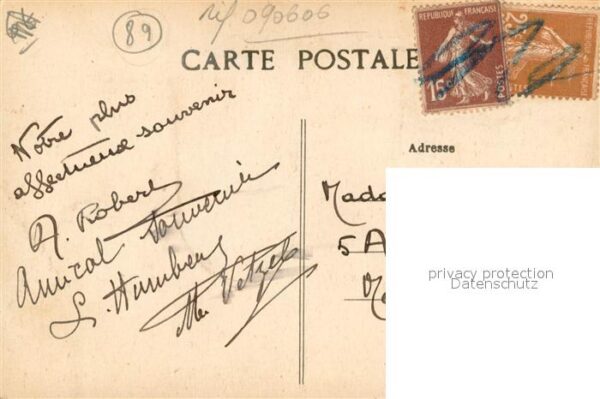 réf 090606
89
CARTE POSTALE
REPUBLIQUE FRANÇAISE
15
POSTES
25
Notre plus
affectueux souvenir
A. Robert
Amical Souvenir
Adresse
Mada
5 A
privacy protection
Datenschutz